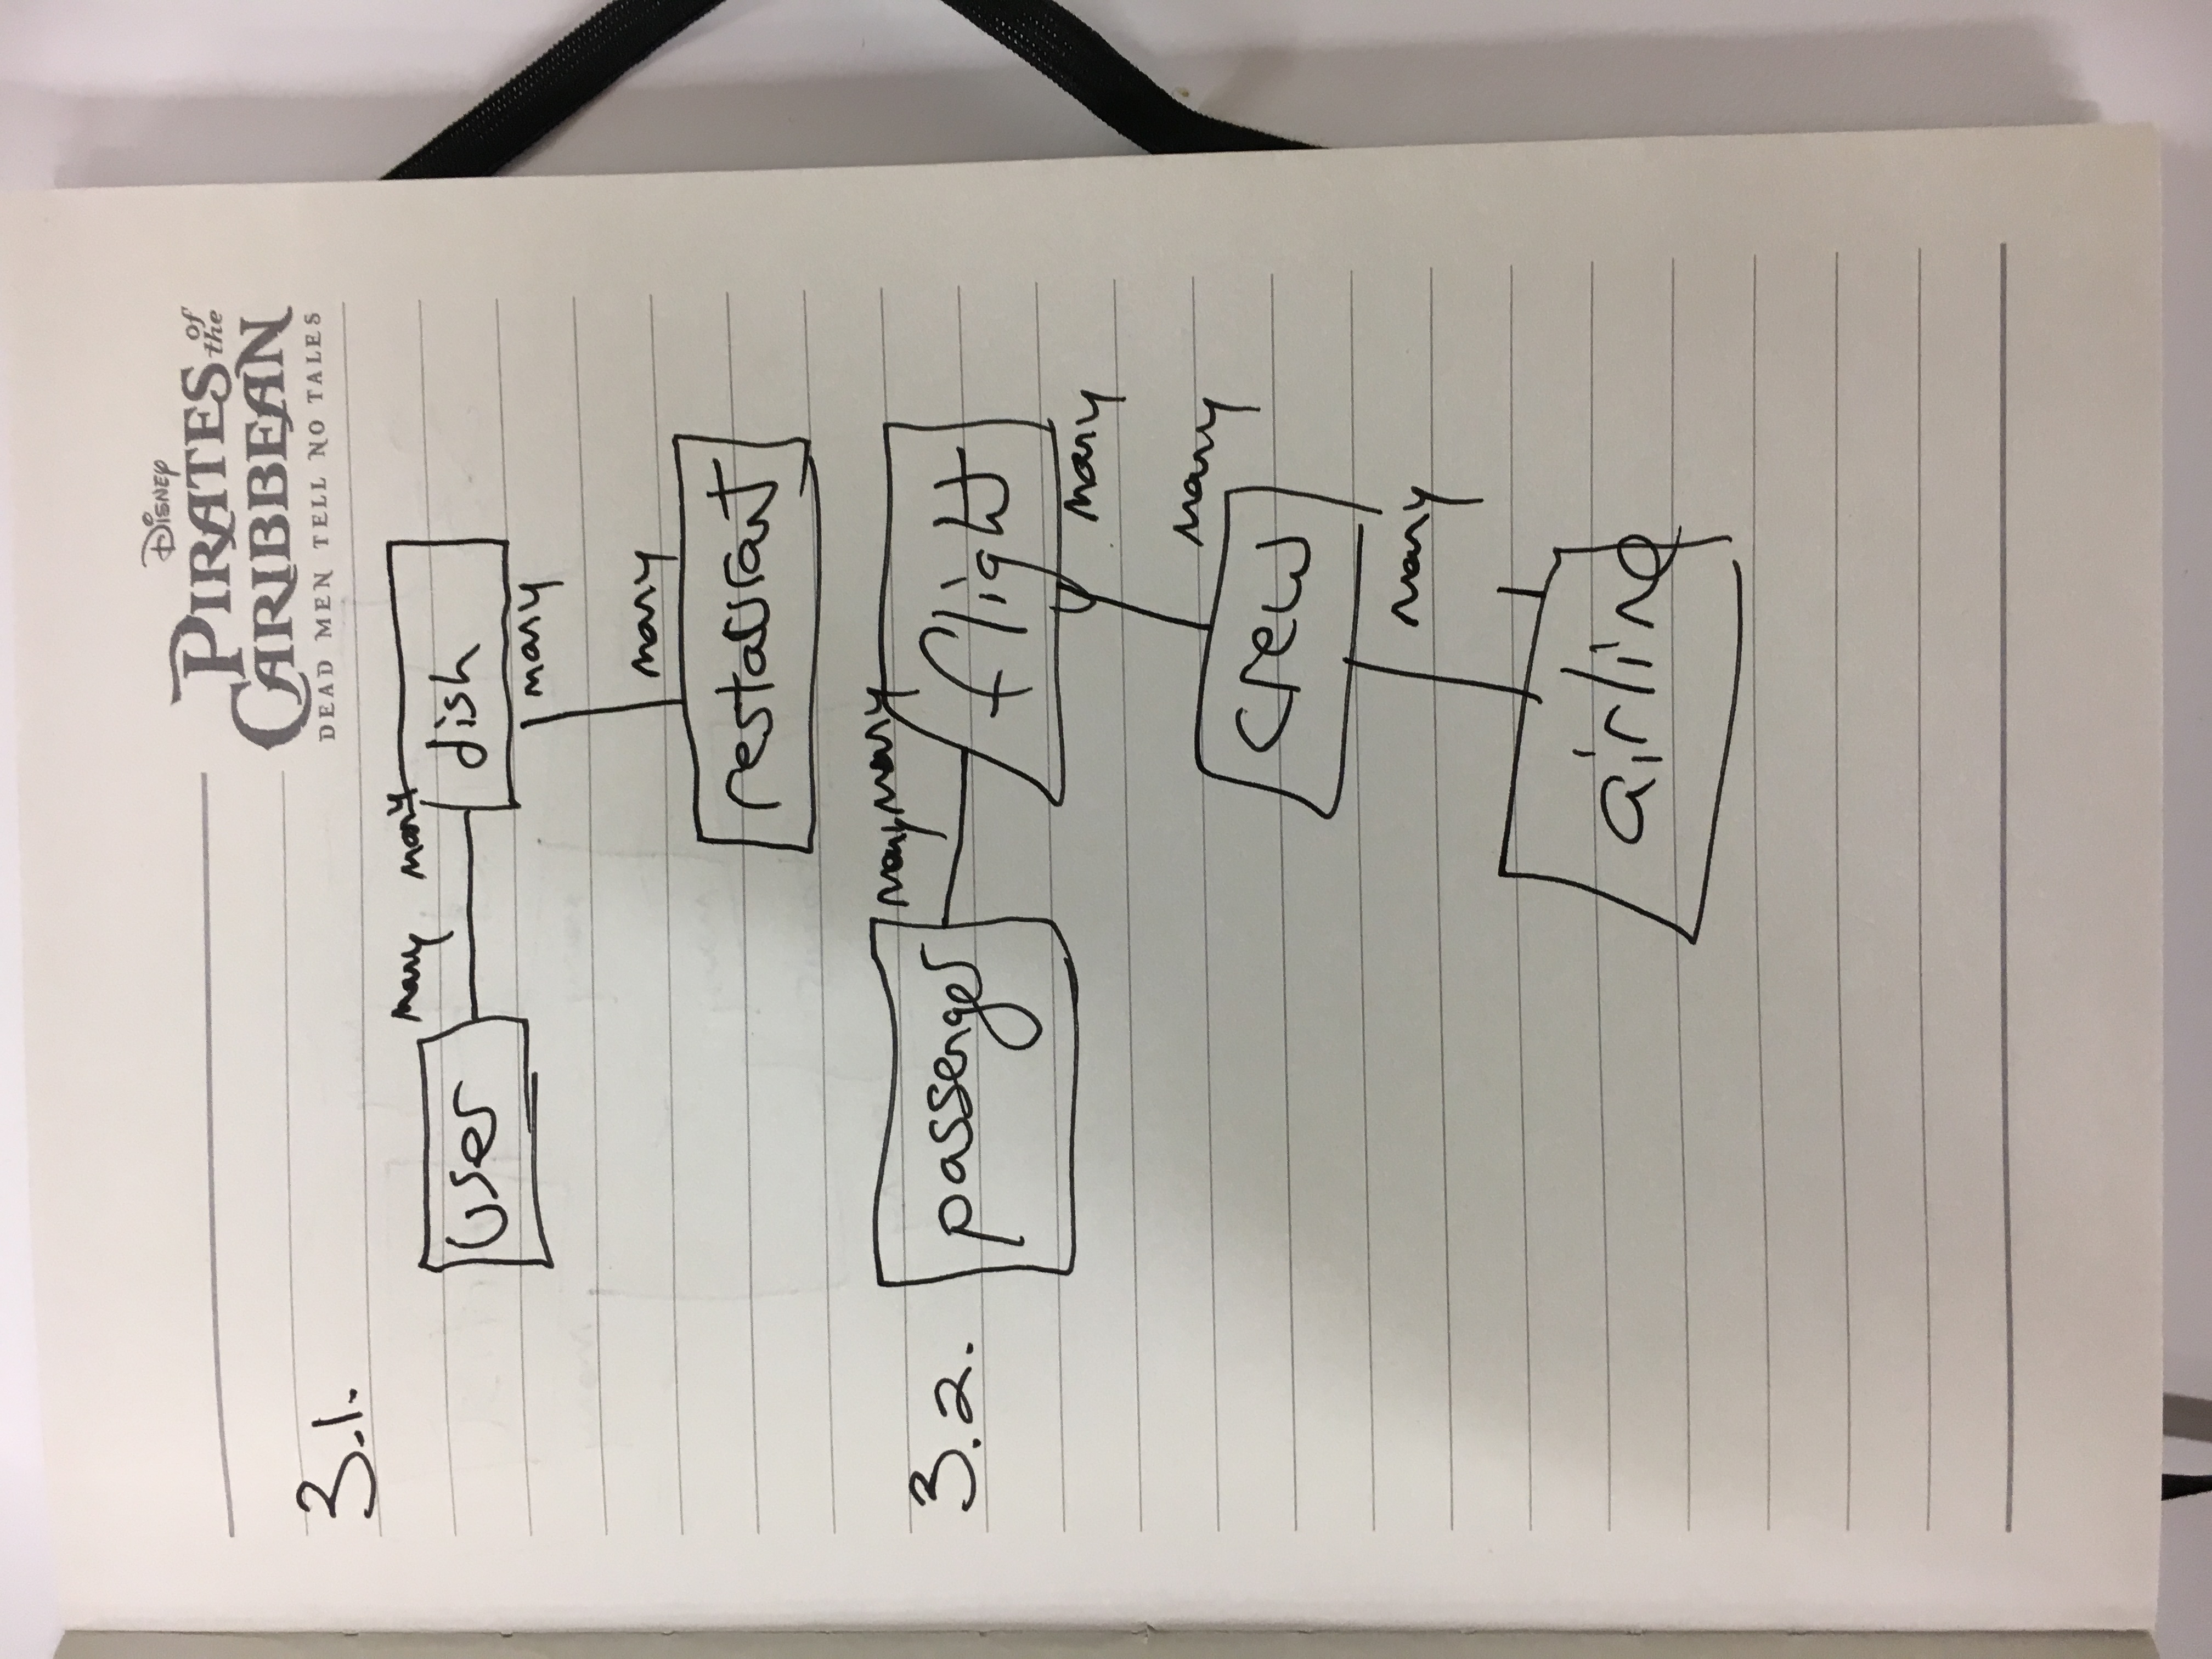 DISNEY
PIRATES of the
CARIBBEAN
DEAD MEN TELL NO TALES
3.1.
many many
user dish
many
many
restaurant
many many
3.2. passenger flight
many
many
crew
many
1
airline